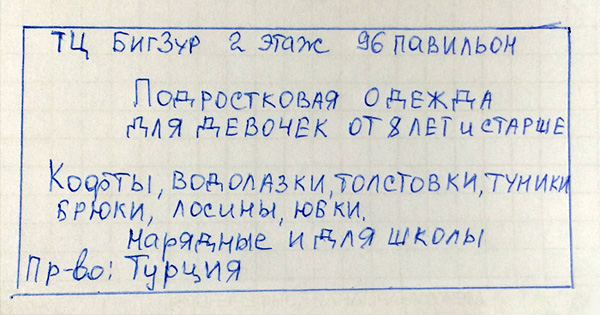 ТЦ БигЗур 2 этаж 96 павильон
Подростковая одежда
для девочек от 8 лет и старше
Кофты, водолазки, толстовки, туники
брюки, лосины, юбки.
нарядные и для школы
Пр-во: Турция